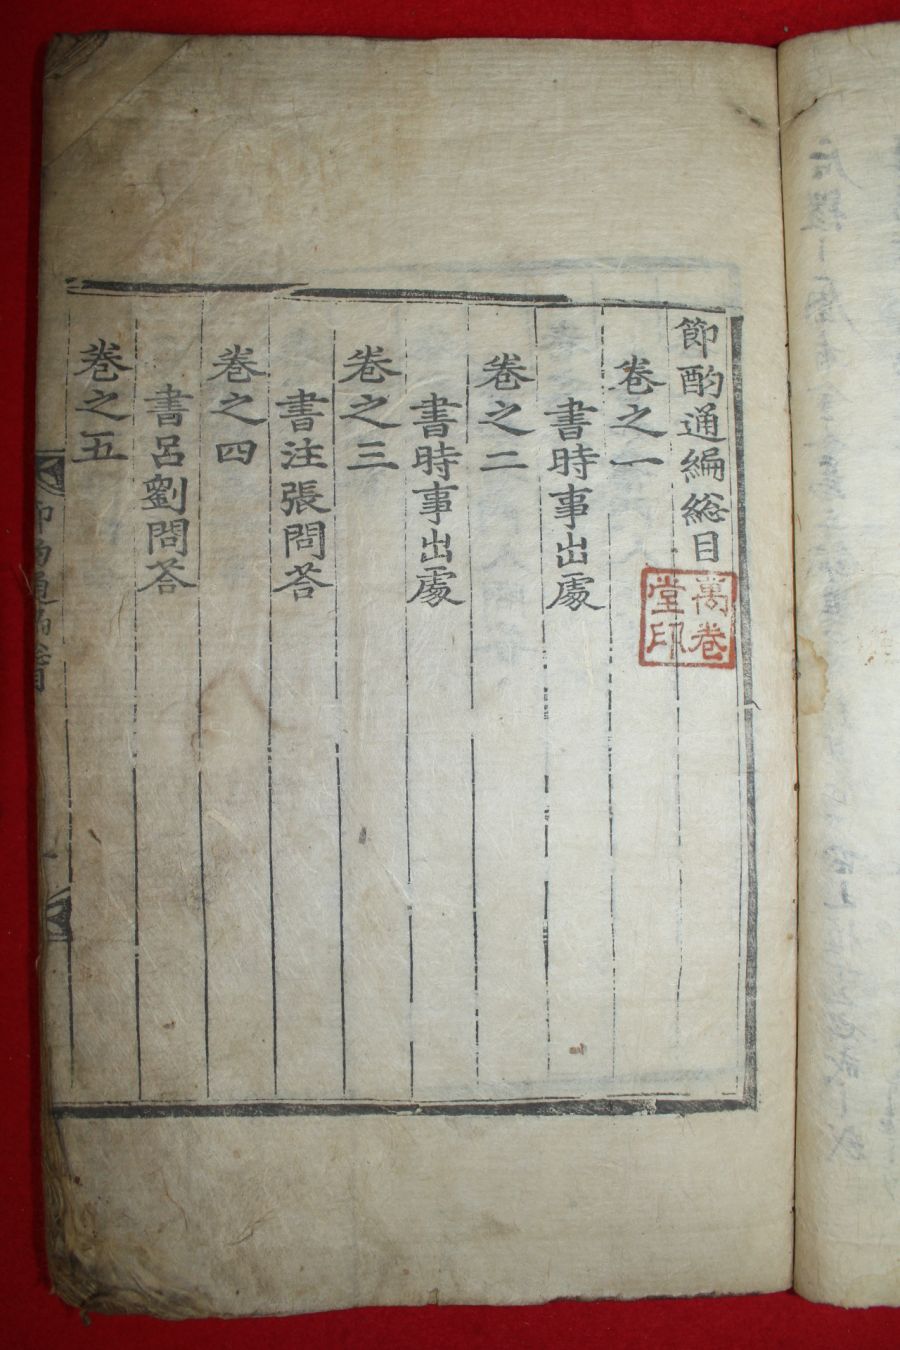 節酌通編総目
卷之一
書時事出處
卷之二
書時事出處
卷之三
書注張問荅
卷之四
書呂劉問荅
卷之五
萬卷
堂印